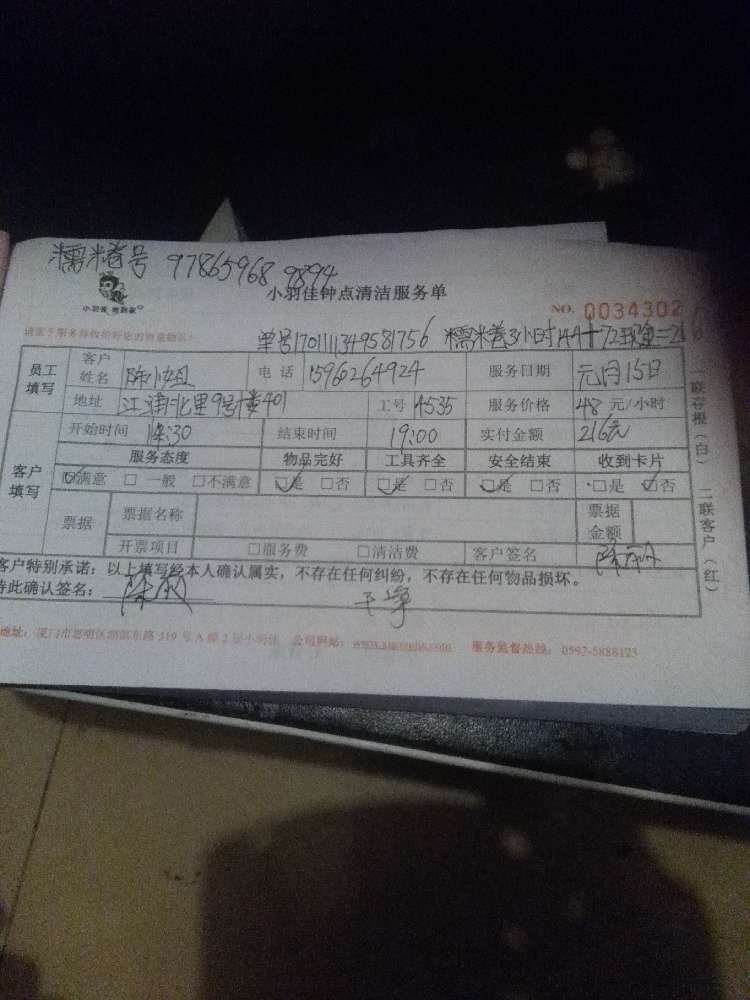 糯米卷号 97865968 9894
小羽佳钟点清洁服务单
小羽佳
NO. 0034302
单号170111349581756 糯米卷3小时144+72现金=216
员工填写
客户姓名 陈小姐 电话 15960264924 服务日期 元月15日
地址 江浦北里9号楼401 工号 4535 服务价格 48 元/小时
客户填写
开始时间 14:30 结束时间 19:00 实付金额 216元
服务态度 物品完好 工具齐全 安全结束 收到卡片
☑满意 □ 一般 □不满意 ☑是 □否 ☑是 □否 ☑是 □否 □是 ☑否
票据 票据名称 票据金额
开票项目 □服务费 □清洁费 客户签名
客户特别承诺：以上填写经本人确认属实，不存在任何纠纷，不存在任何物品损坏。
特此确认签名： 干净
地址：厦门市思明区 319号A幢2层小羽佳 公司网站： 服务监督热线：0592-5888123
一联存根（白） 二联客户（红）